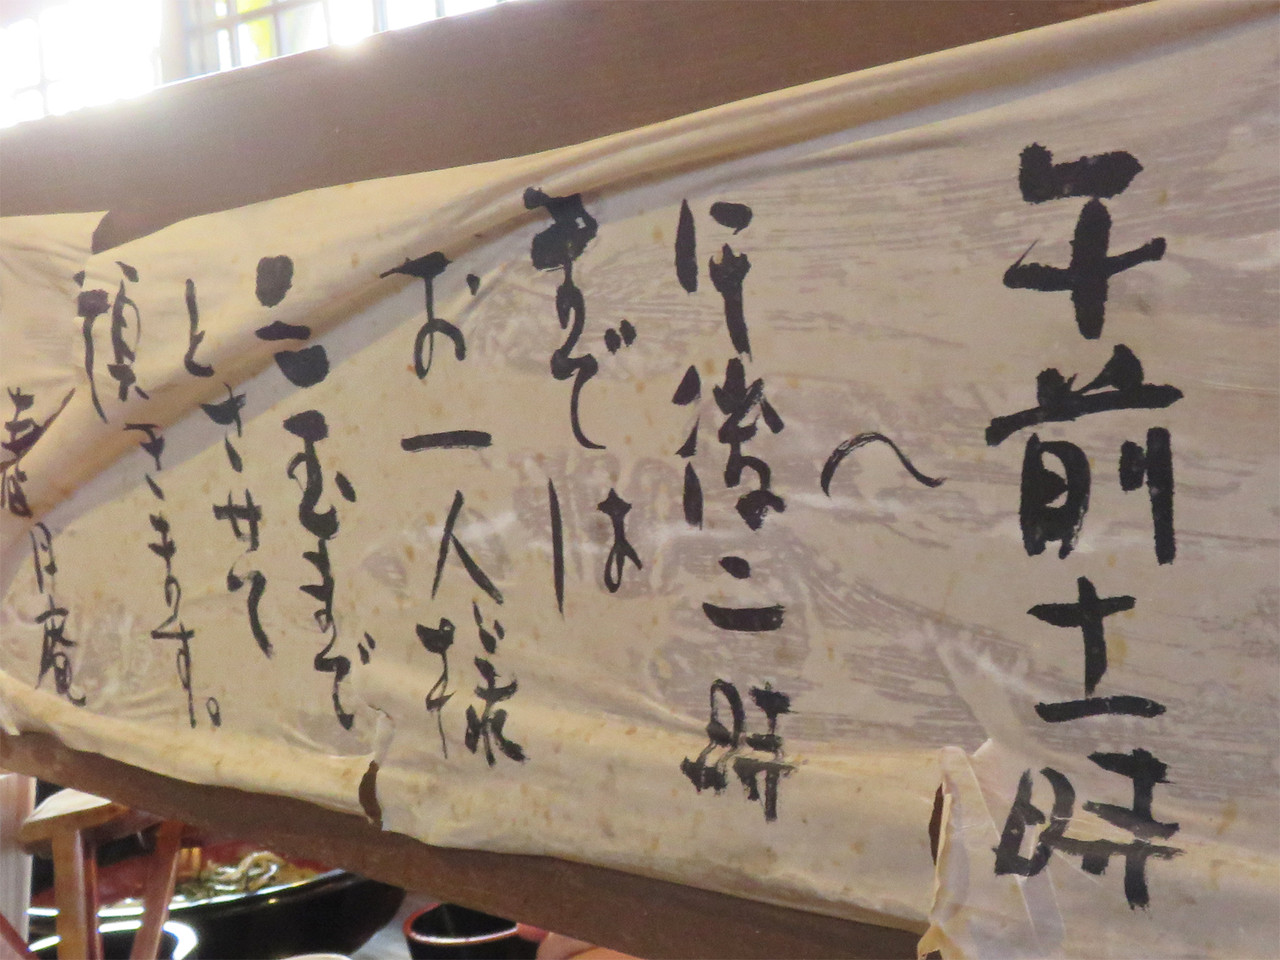 午前十一時
〜
午後二時
までは
お一人様
三玉まで
とさせて
頂きます。
春月庵